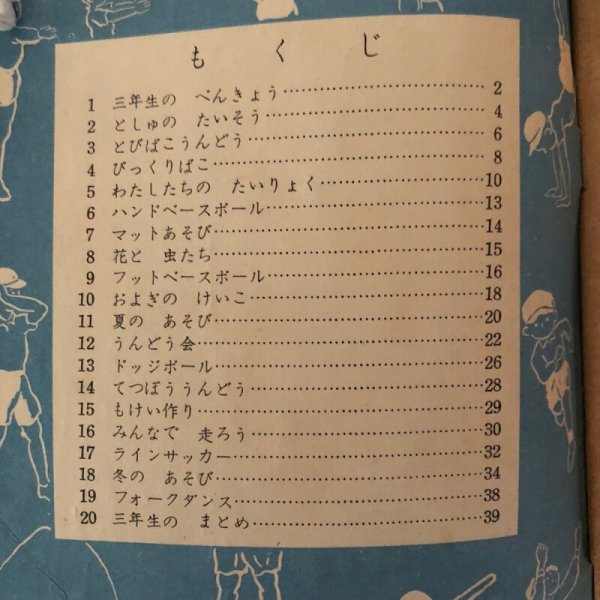 もくじ
1 三年生の べんきょう……………2
2 としゅの たいそう……………4
3 とびばこうんどう……………6
4 びっくりばこ……………8
5 わたしたちの たいりょく……………10
6 ハンドベースボール……………13
7 マットあそび……………14
8 花と 虫たち……………15
9 フットベースボール……………16
10 およぎの けいこ……………18
11 夏の あそび……………20
12 うんどう会……………22
13 ドッジボール……………26
14 てつぼううんどう……………28
15 もけい作り……………29
16 みんなで 走ろう……………30
17 ラインサッカー……………32
18 冬の あそび……………34
19 フォークダンス……………38
20 三年生の まとめ……………39